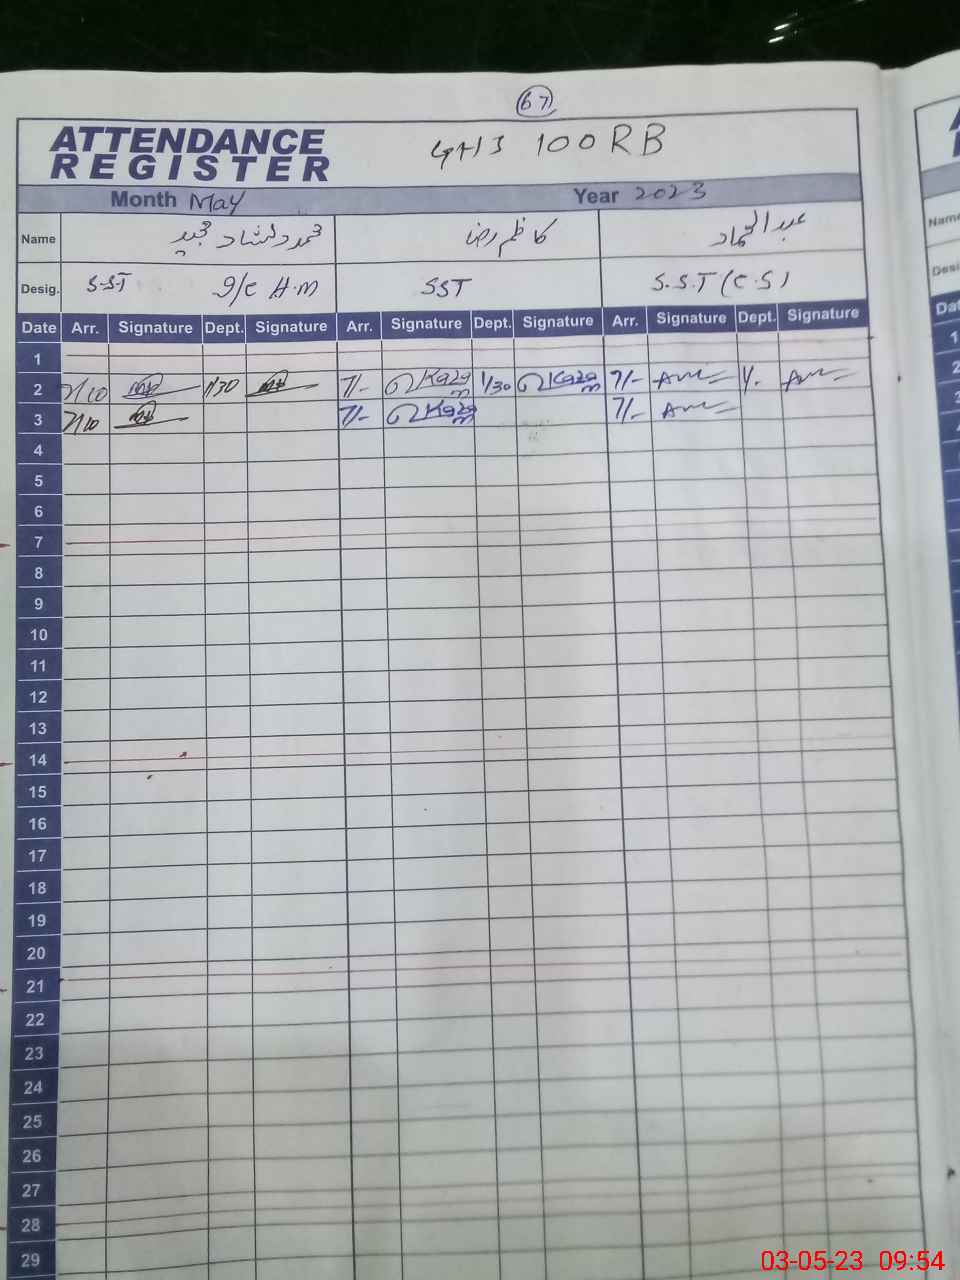 67
ATTENDANCE
REGISTER
GHS 100 RB
Month May Year 2023
Name محمد دلشاد مجید کاظم رضا عبدالحماد
Desig. S.ST I/C H.M SST S.S.T (C.S)
Date Arr. Signature Dept. Signature Arr. Signature Dept. Signature Arr. Signature Dept. Signature
1
2 7/10 1/30 7/- Kazm 1/30 Kazm 7/- 1/-
3 7/10 7/- Kazm 7/-
4
5
6
7
8
9
10
11
12
13
14
15
16
17
18
19
20
21
22
23
24
25
26
27
28
29
Name
Desi
Dat
1
2
03-05-23 09:54